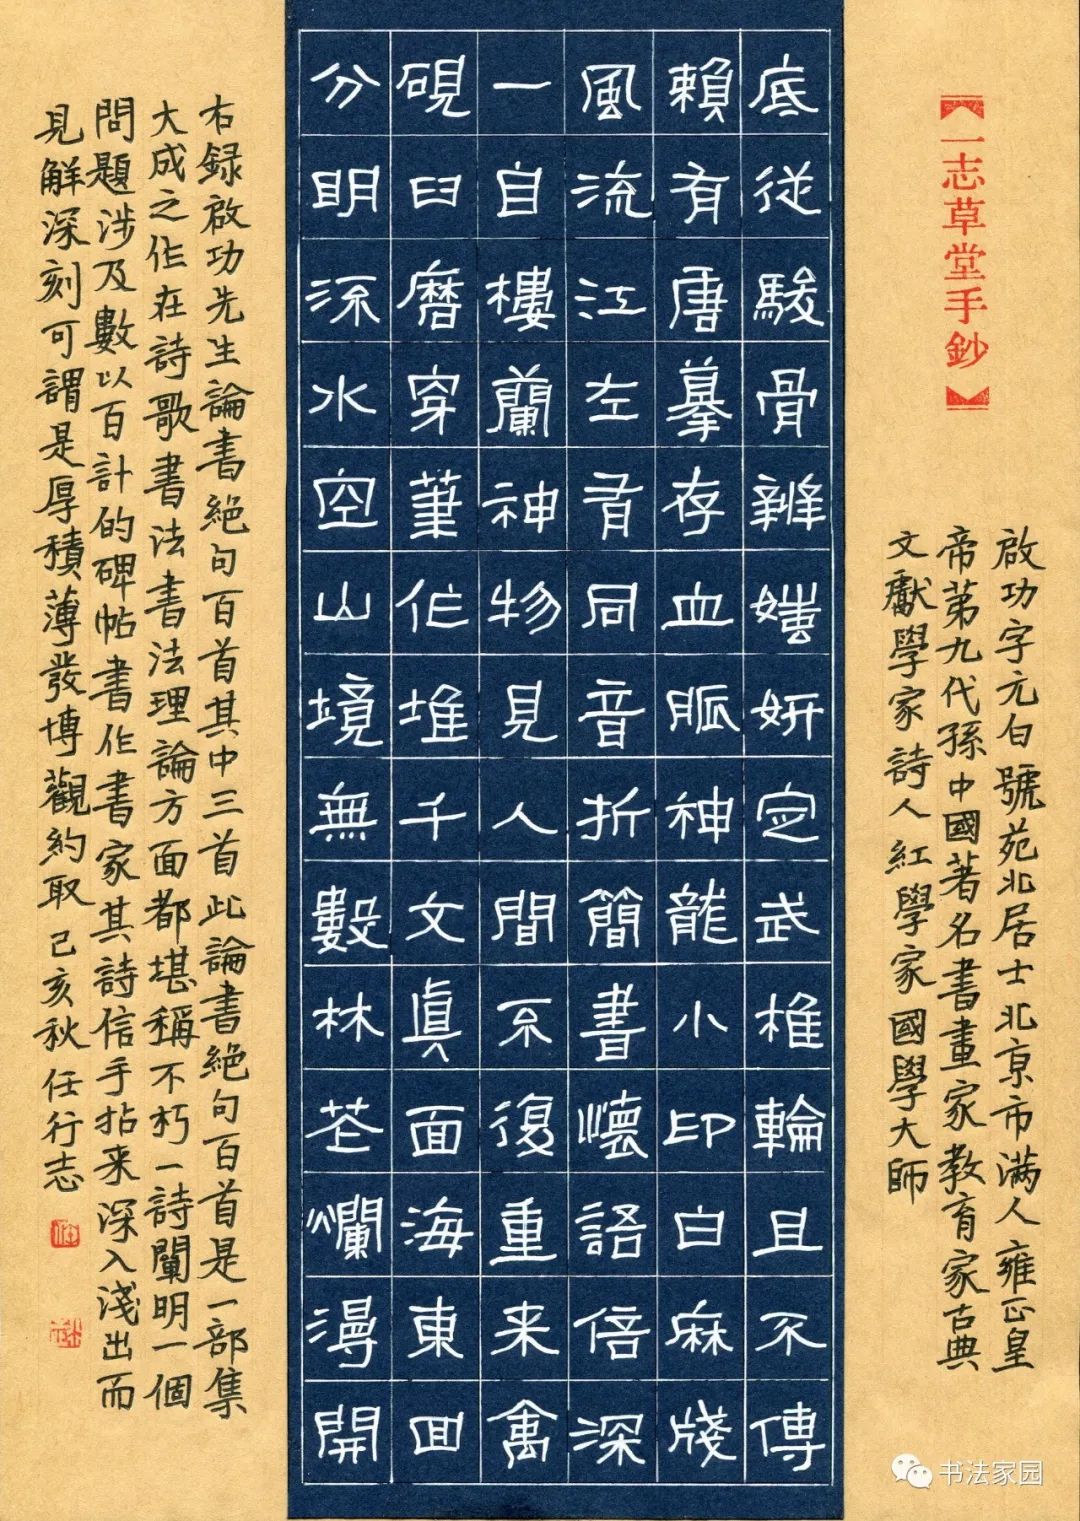 【一志草堂手鈔】
啟功字元白號苑北居士北京市满人雍正皇
帝第九代孫中國著名書畫家教育家古典
文獻學家詩人紅學家國學大師
底從駿骨辨媸妍定武椎輪且不傳
賴有唐摹存血脈神龍小印白麻牋
風流江左有同音折簡書懷語倍深
一自樓蘭神物見人間不復重来禽
硯臼磨穿筆作堆千文真面海東回
分明流水空山境無數林花爛漫開
右録啟功先生論書絕句百首其中三首此論書絕句百首是一部集
大成之作在詩歌書法書法理論方面都堪稱不朽一詩闡明一個
問題涉及數以百計的碑帖書作書家其詩信手拈来深入淺出而
見解深刻可謂是厚積薄發博觀約取己亥秋任行志
书法家园